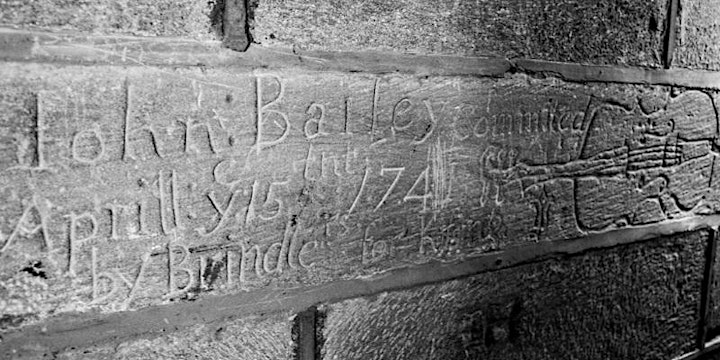 Iohn Bailey Committed
Aprill: y 15 1741
by Brindle for